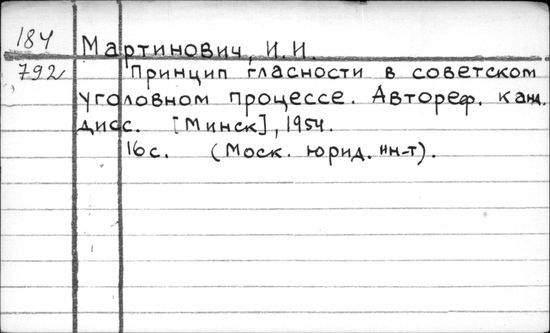 184 Мартинович, И.И.
792 Принцип гласности в советском
уголовном процессе. Автореф. канд.
дисс. [Минск], 1954.
16с. (Моск. юрид. ин-т).